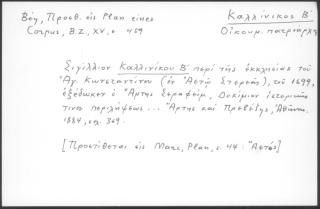 Βέη, Προσθ. εἰς Plan eines
Corpus, B.Z., XV, σ. 459
Καλλίνικος Β΄
Οἰκουμ. πατριάρχης
Σιγίλλιον Καλλινίκου Β΄ περὶ τῆς ἐκκλησίας τοῦ
Ἁγ. Κωνσταντίνου (ἐν Ἀετῷ Στερεᾶς), τοῦ 1699,
ἐξέδωκεν ὁ Ἄρτης Σεραφείμ, Δοκίμιον ἱστορικῆς
τινος περιλήψεως... Ἄρτης καὶ Πρεβέζης, Ἀθῆναι
1884, σελ. 369.
[Προστίθεται εἰς Marc, Plan, σ. 44: Ἀετός]